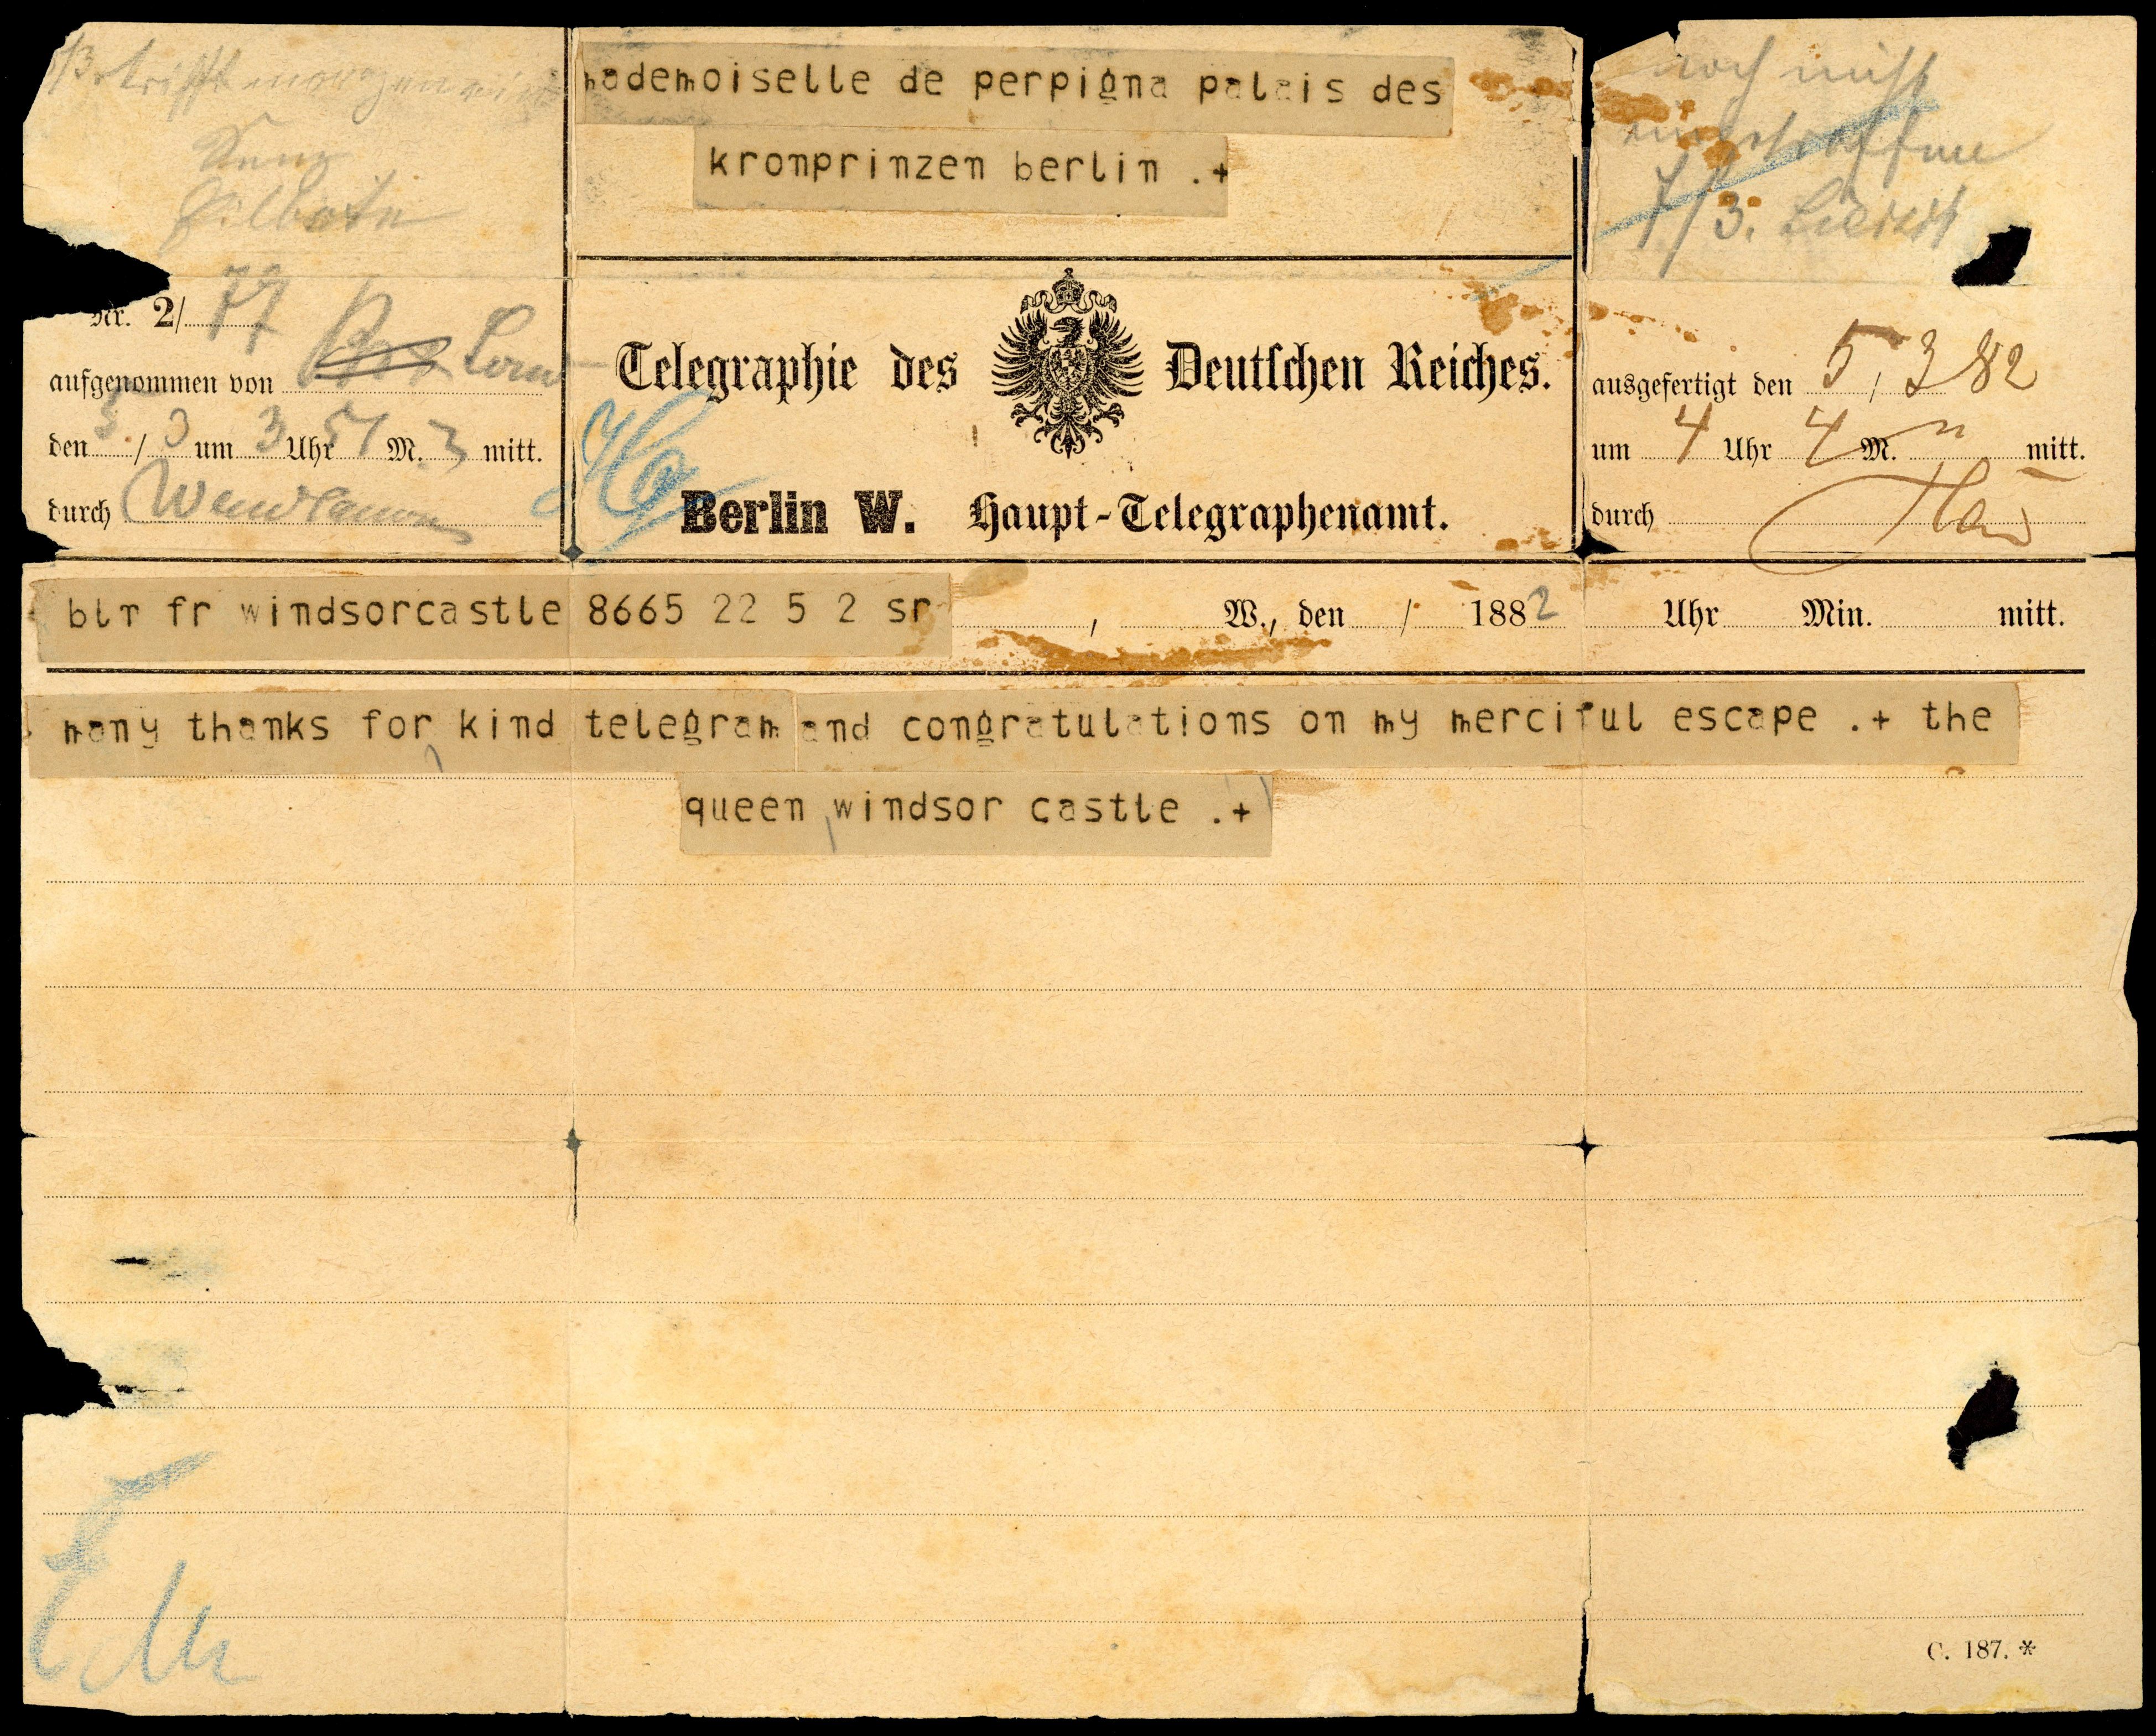 mademoiselle de perpigna palais des
kronprinzen berlin .+
noch nicht
eingetroffen
7/3.
Eilbote
Nr. 2/ 77
aufgenommen von Lon
den 5/3 um 3 Uhr 51 M. mitt.
durch
Telegraphie des Deutschen Reiches.
Berlin W. Haupt-Telegraphenamt.
ausgefertigt den 5/3 82
um 4 Uhr 4 M. n mitt.
durch
blr fr windsorcastle 8665 22 5 2 sr , W., den / 1882 Uhr Min. mitt.
many thanks for kind telegram and congratulations on my merciful escape .+ the
queen windsor castle .+
C. 187. *